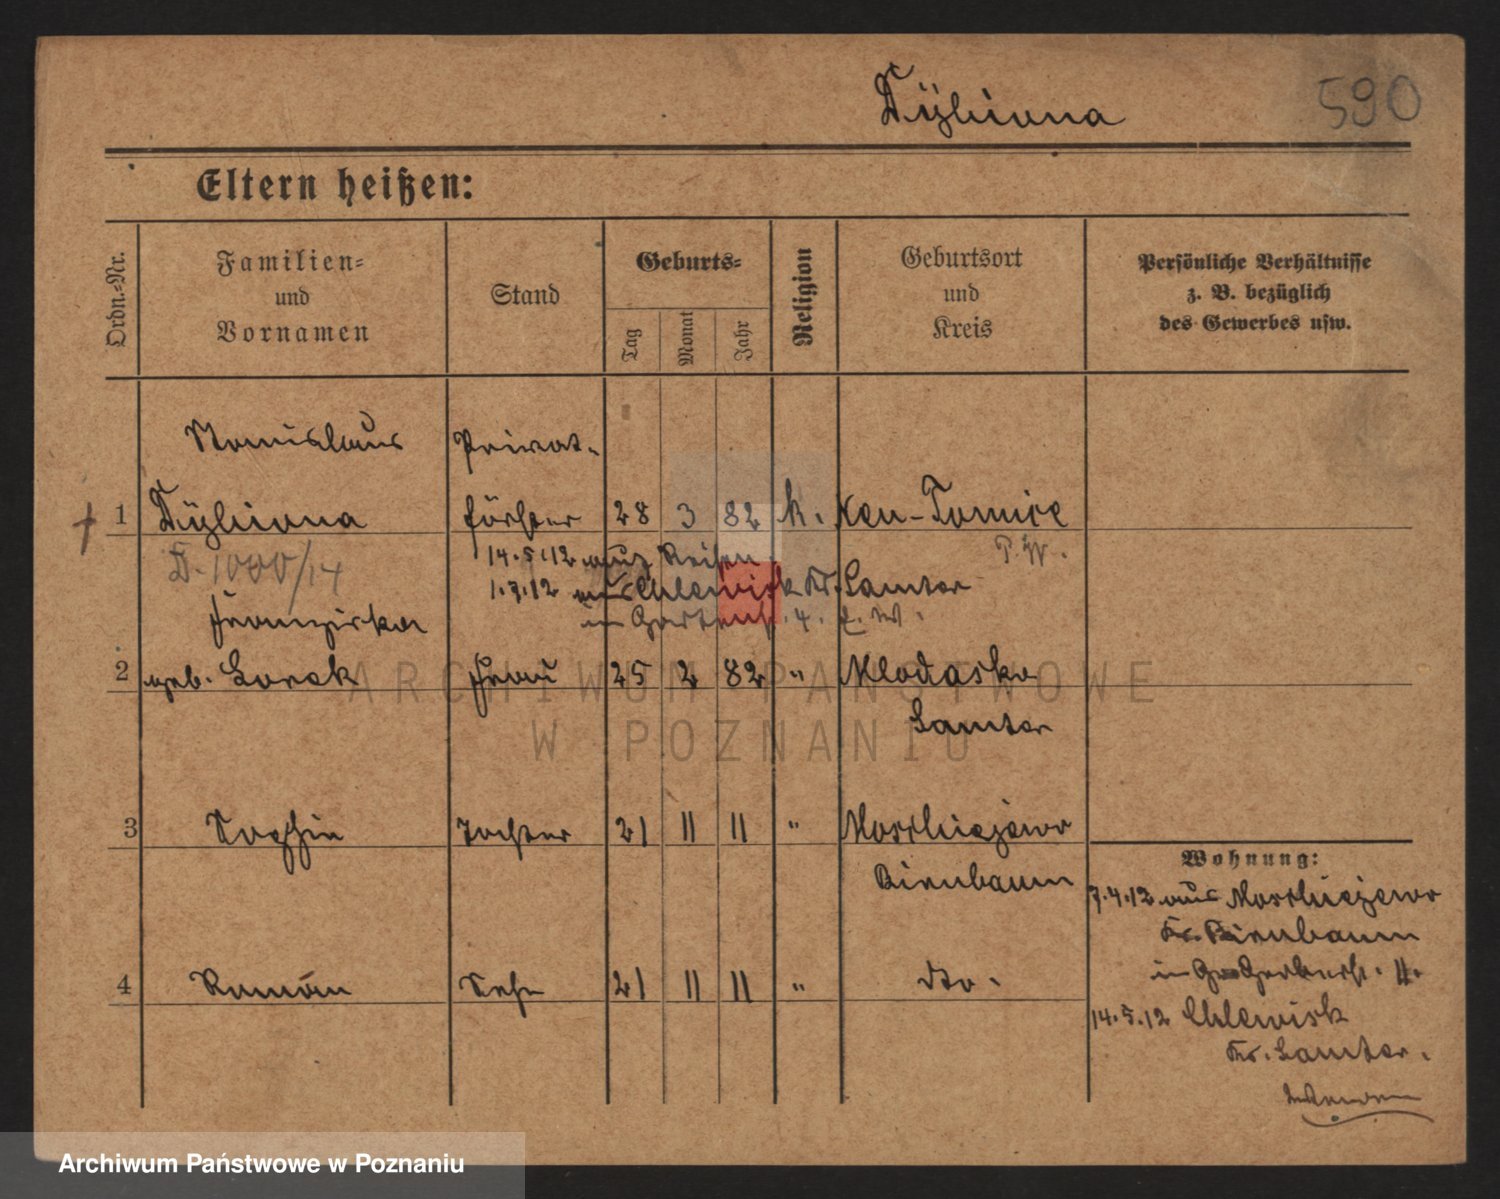 Dybiona
590
Eltern heißen:
Ordn.-Nr.
Familien- und Vornamen
Stand
Geburts-
Tag
Monat
Jahr
Religion
Geburtsort und Kreis
Persönliche Verhältnisse z. B. bezüglich des Gewerbes usw.
Stanislaus Privat-
1 Dybiona förster 28 3 82 k. Neu-Tomice
P. W.
D. 1000/14
14.5.12 aus Reisen
1.7.12 aus Chlewisk Kr. Samter
in Gartenstr. 4.
Franziska
2 geb. Lorek Frau 25 2 82 " Mlodasko
Samter
3 Sophie Tochter 21 11 11 "
Birnbaum
4 Roman Sohn 21 11 11 " dto.
Wohnung:
7.4.12 aus
Kr. Birnbaum
in Gr. Gerberstr. 11.
14.5.12 Chlewisk
Kr. Samter.
ARCHIWUM PAŃSTWOWE
W POZNANIU
Archiwum Państwowe w Poznaniu